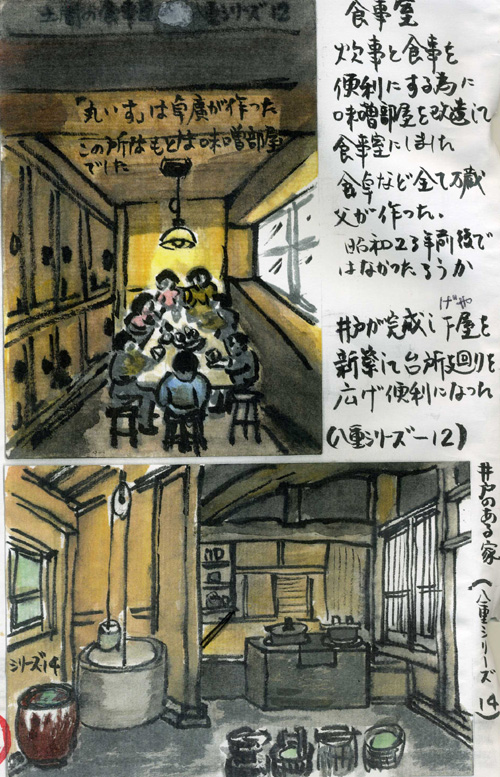 土間の食事室 八重シリーズ12
「丸いす」は卓廣が作った
この所はもとは味噌部屋
でした
食事室
炊事と食事を
便利にする為に
味噌部屋を改造して
食事室にしました
食卓など全て万蔵
父が作った、
昭和23年前後で
はなかったろうか
げや
井戸が完成し下屋を
新築して台所廻りを
広げ便利になった
(八重シリーズー12)
井戸のある家(八重シリーズ14)
シリーズ14